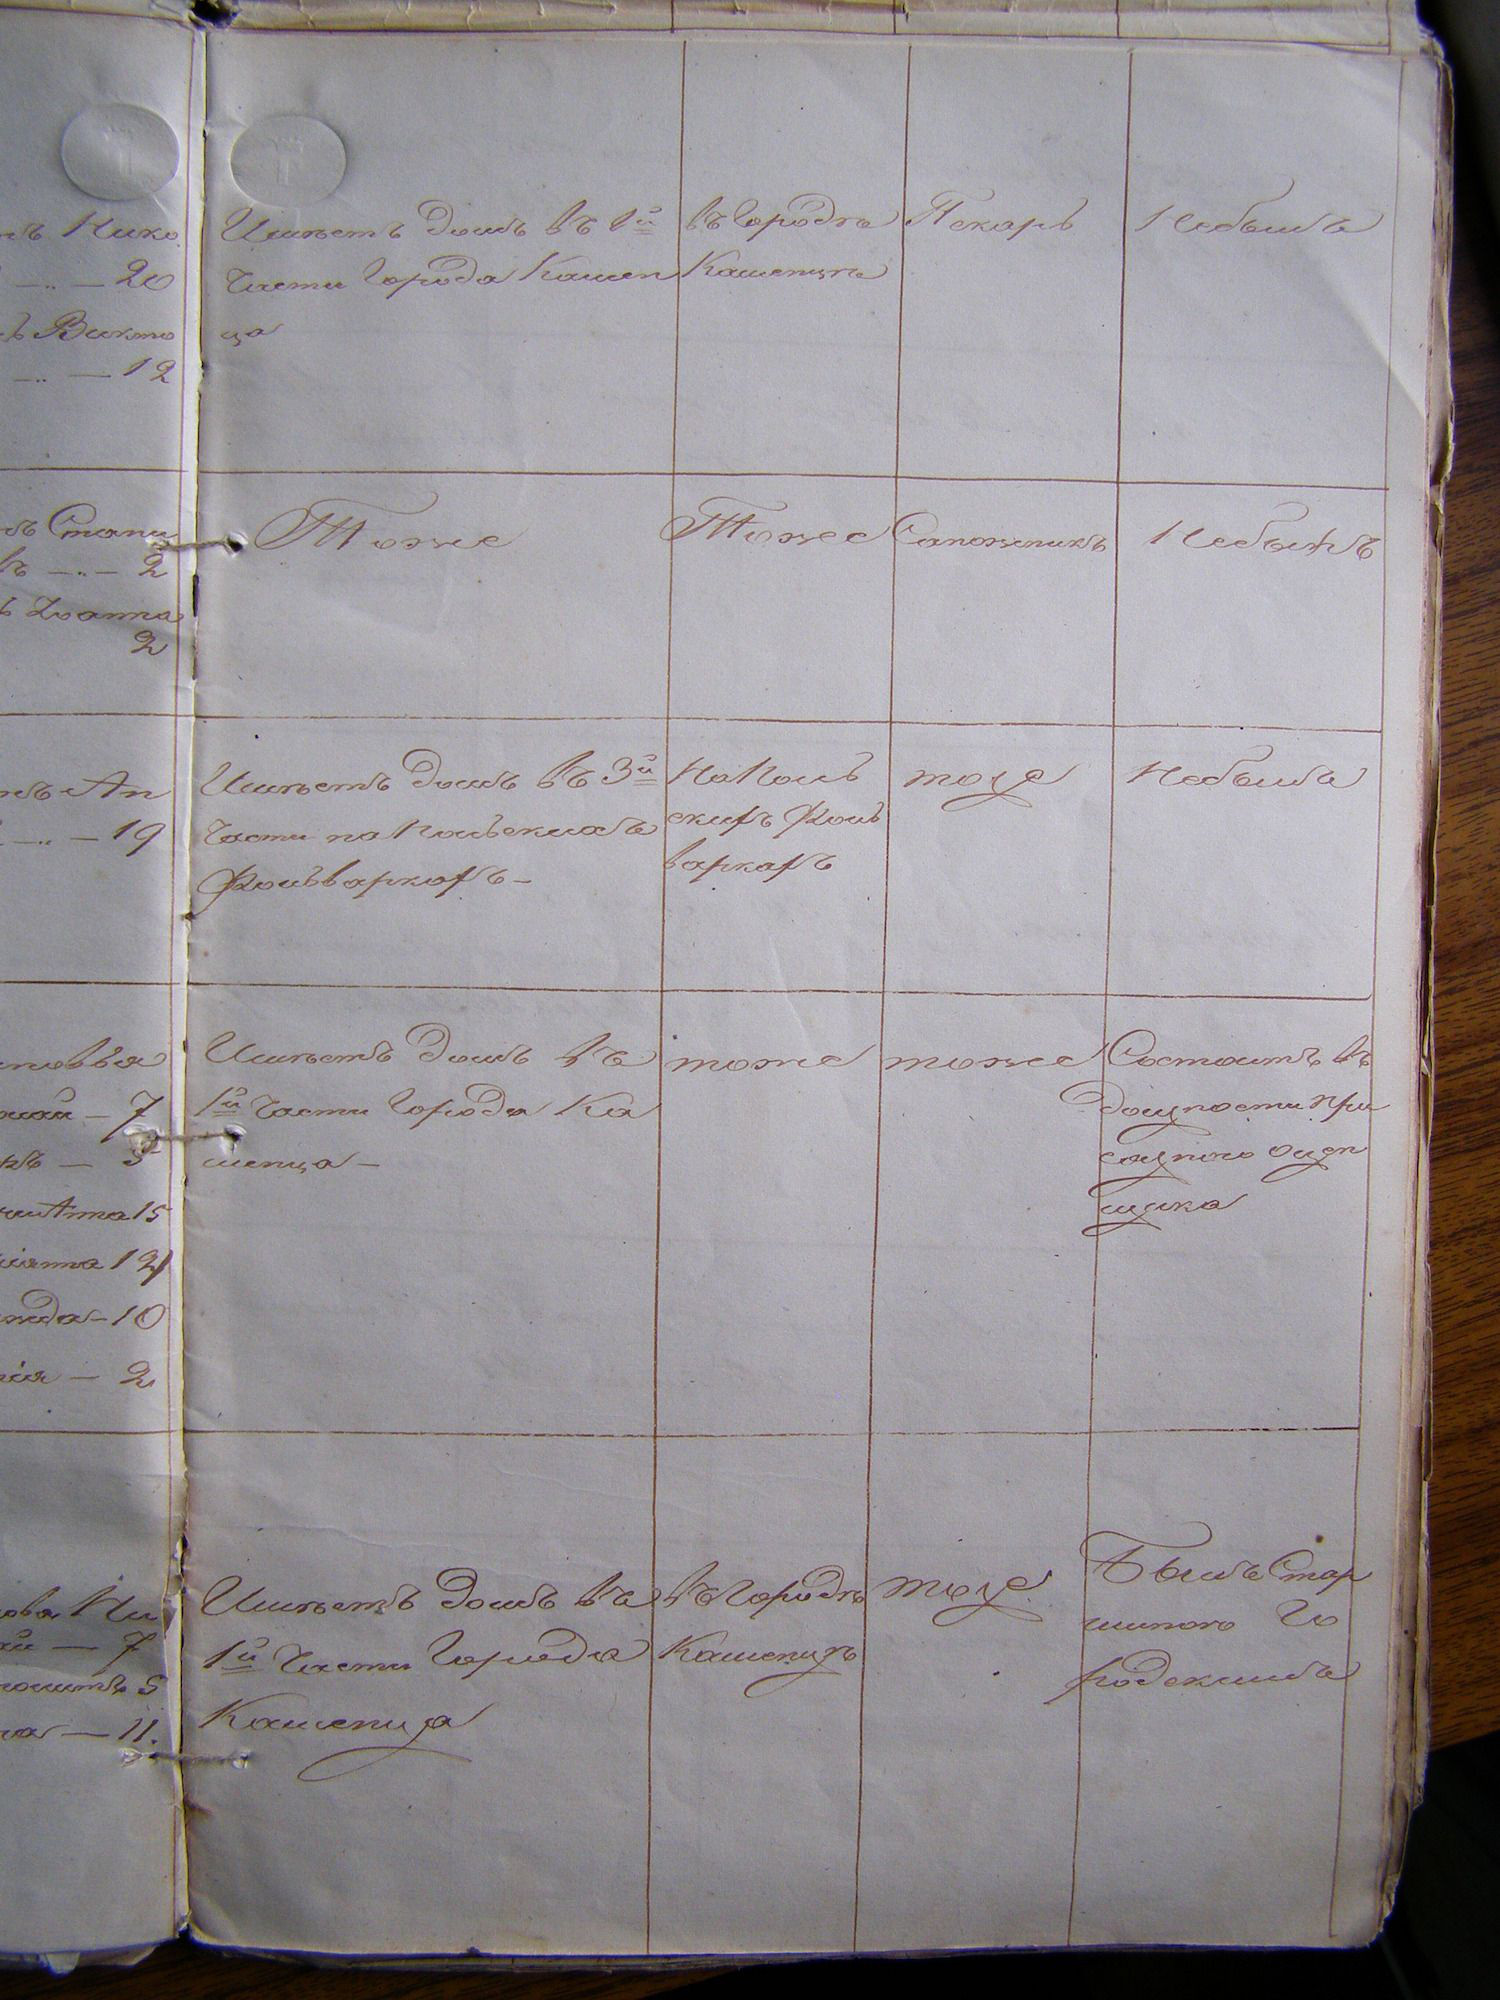 Нико
20
Викто
12
Имѣетъ домъ въ 1й
части города Камен
ца
въ городѣ
Каменцѣ
Пекарь
Небылъ
Стани
2
Іоанна
2
Тоже
Тоже
Сапожникъ
Небылъ
Ан
19
Имѣетъ домъ въ 3й
части на Польскихъ
Фольваркахъ
На Поль
скихъ Фоль
варкахъ
тоже
Небылъ
7
5
Анна 15
12
10
2
Имѣетъ домъ въ
1й части города Ка
менца
тоже
тоже
Состоитъ въ
должности при
сяжного оцен
щика
Ни
7
5
11.
Имѣетъ домъ въ
1й части города
Каменца
въ городѣ
Каменцѣ
тоже
Былъ Стар
шиною Го
родскимъ